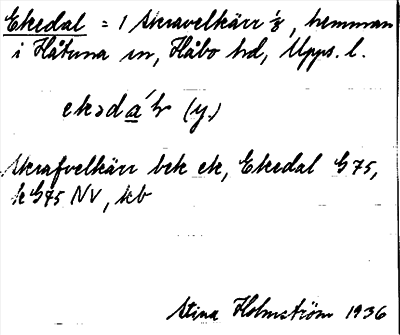 Ekedal = 1 Skravelkärr ⅓, hemman
i Håtuna sn, Håbo hd, Upps. l.
ekədá
(y.)
Skrafvelkärr bek ek, Ekedal G 75,
k G75 NV, kb
Stina Holmström 1936